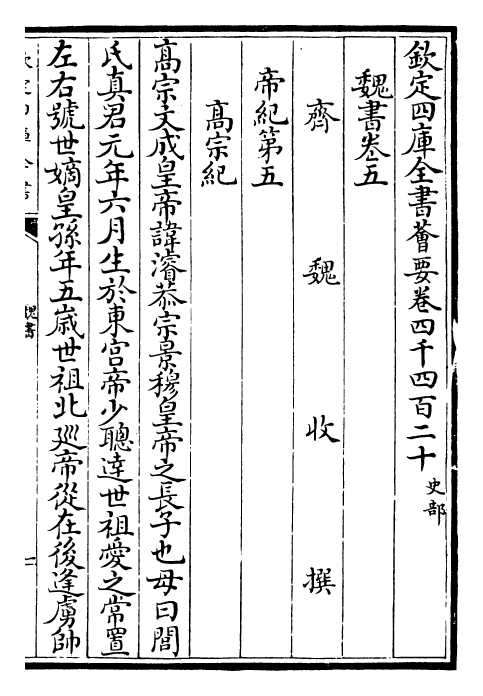 欽定四庫全書薈要卷四千四百二十 史部
魏書卷五
齊 魏 收 撰
帝紀第五
高宗紀
髙宗文成皇帝諱濬恭宗景穆皇帝之長子也母曰閭
氏真君元年六月生於東宫帝少聰達世祖愛之常置
左右號世嫡皇孫年五歲世祖北廵帝從在後逢虜帥
欽定四庫全書
魏書